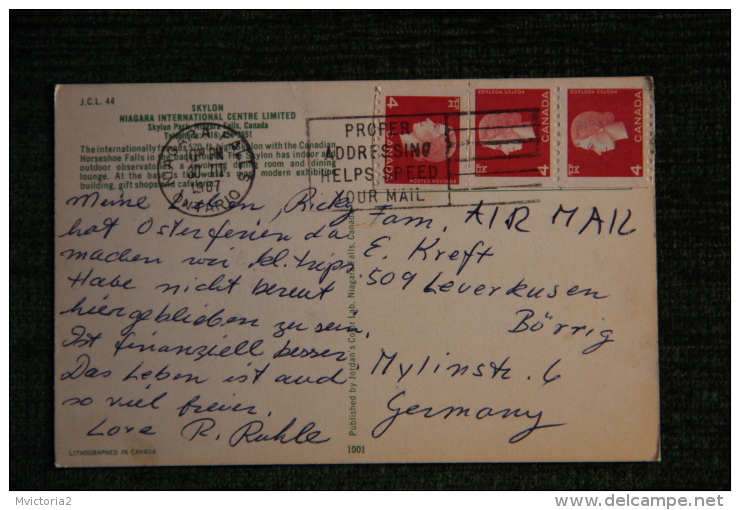 J.C.L. 44
SKYLON
NIAGARA INTERNATIONAL CENTRE LIMITED
Skylon Park, Niagara Falls, Canada
Telephone
The internationally famous 520 ft. high Skylon with the Canadian
Horseshoe Falls in the background. The Skylon has indoor and
outdoor observation revolving dining room and dining
lounge. At the base is the world's most modern exhibition
building, gift shops and
NIAGARA FALLS
1967
ONTARIO
PROPER
ADDRESSING
HELPS SPEED
YOUR MAIL
4
CANADA
POSTES POSTAGE
4
CANADA
POSTES POSTAGE
4
CANADA
POSTES POSTAGE
Meine Lieben, Ricky
hat Osterferien da
machen wir kl. trips
Habe nicht bereut
hiergeblieben zu sein.
Ist finanziell besser
Das Leben ist auch
so viel freier.
Love R. Ruhle
Fam. AIR MAIL
E. Kreft
509 Leverkusen
Börrig
Mylinstr. 6
Germany
Published by Jordan's Color Lab, Niagara Falls, Canada
LITHOGRAPHED IN CANADA
1001
Mvictoria2
delcampe.net